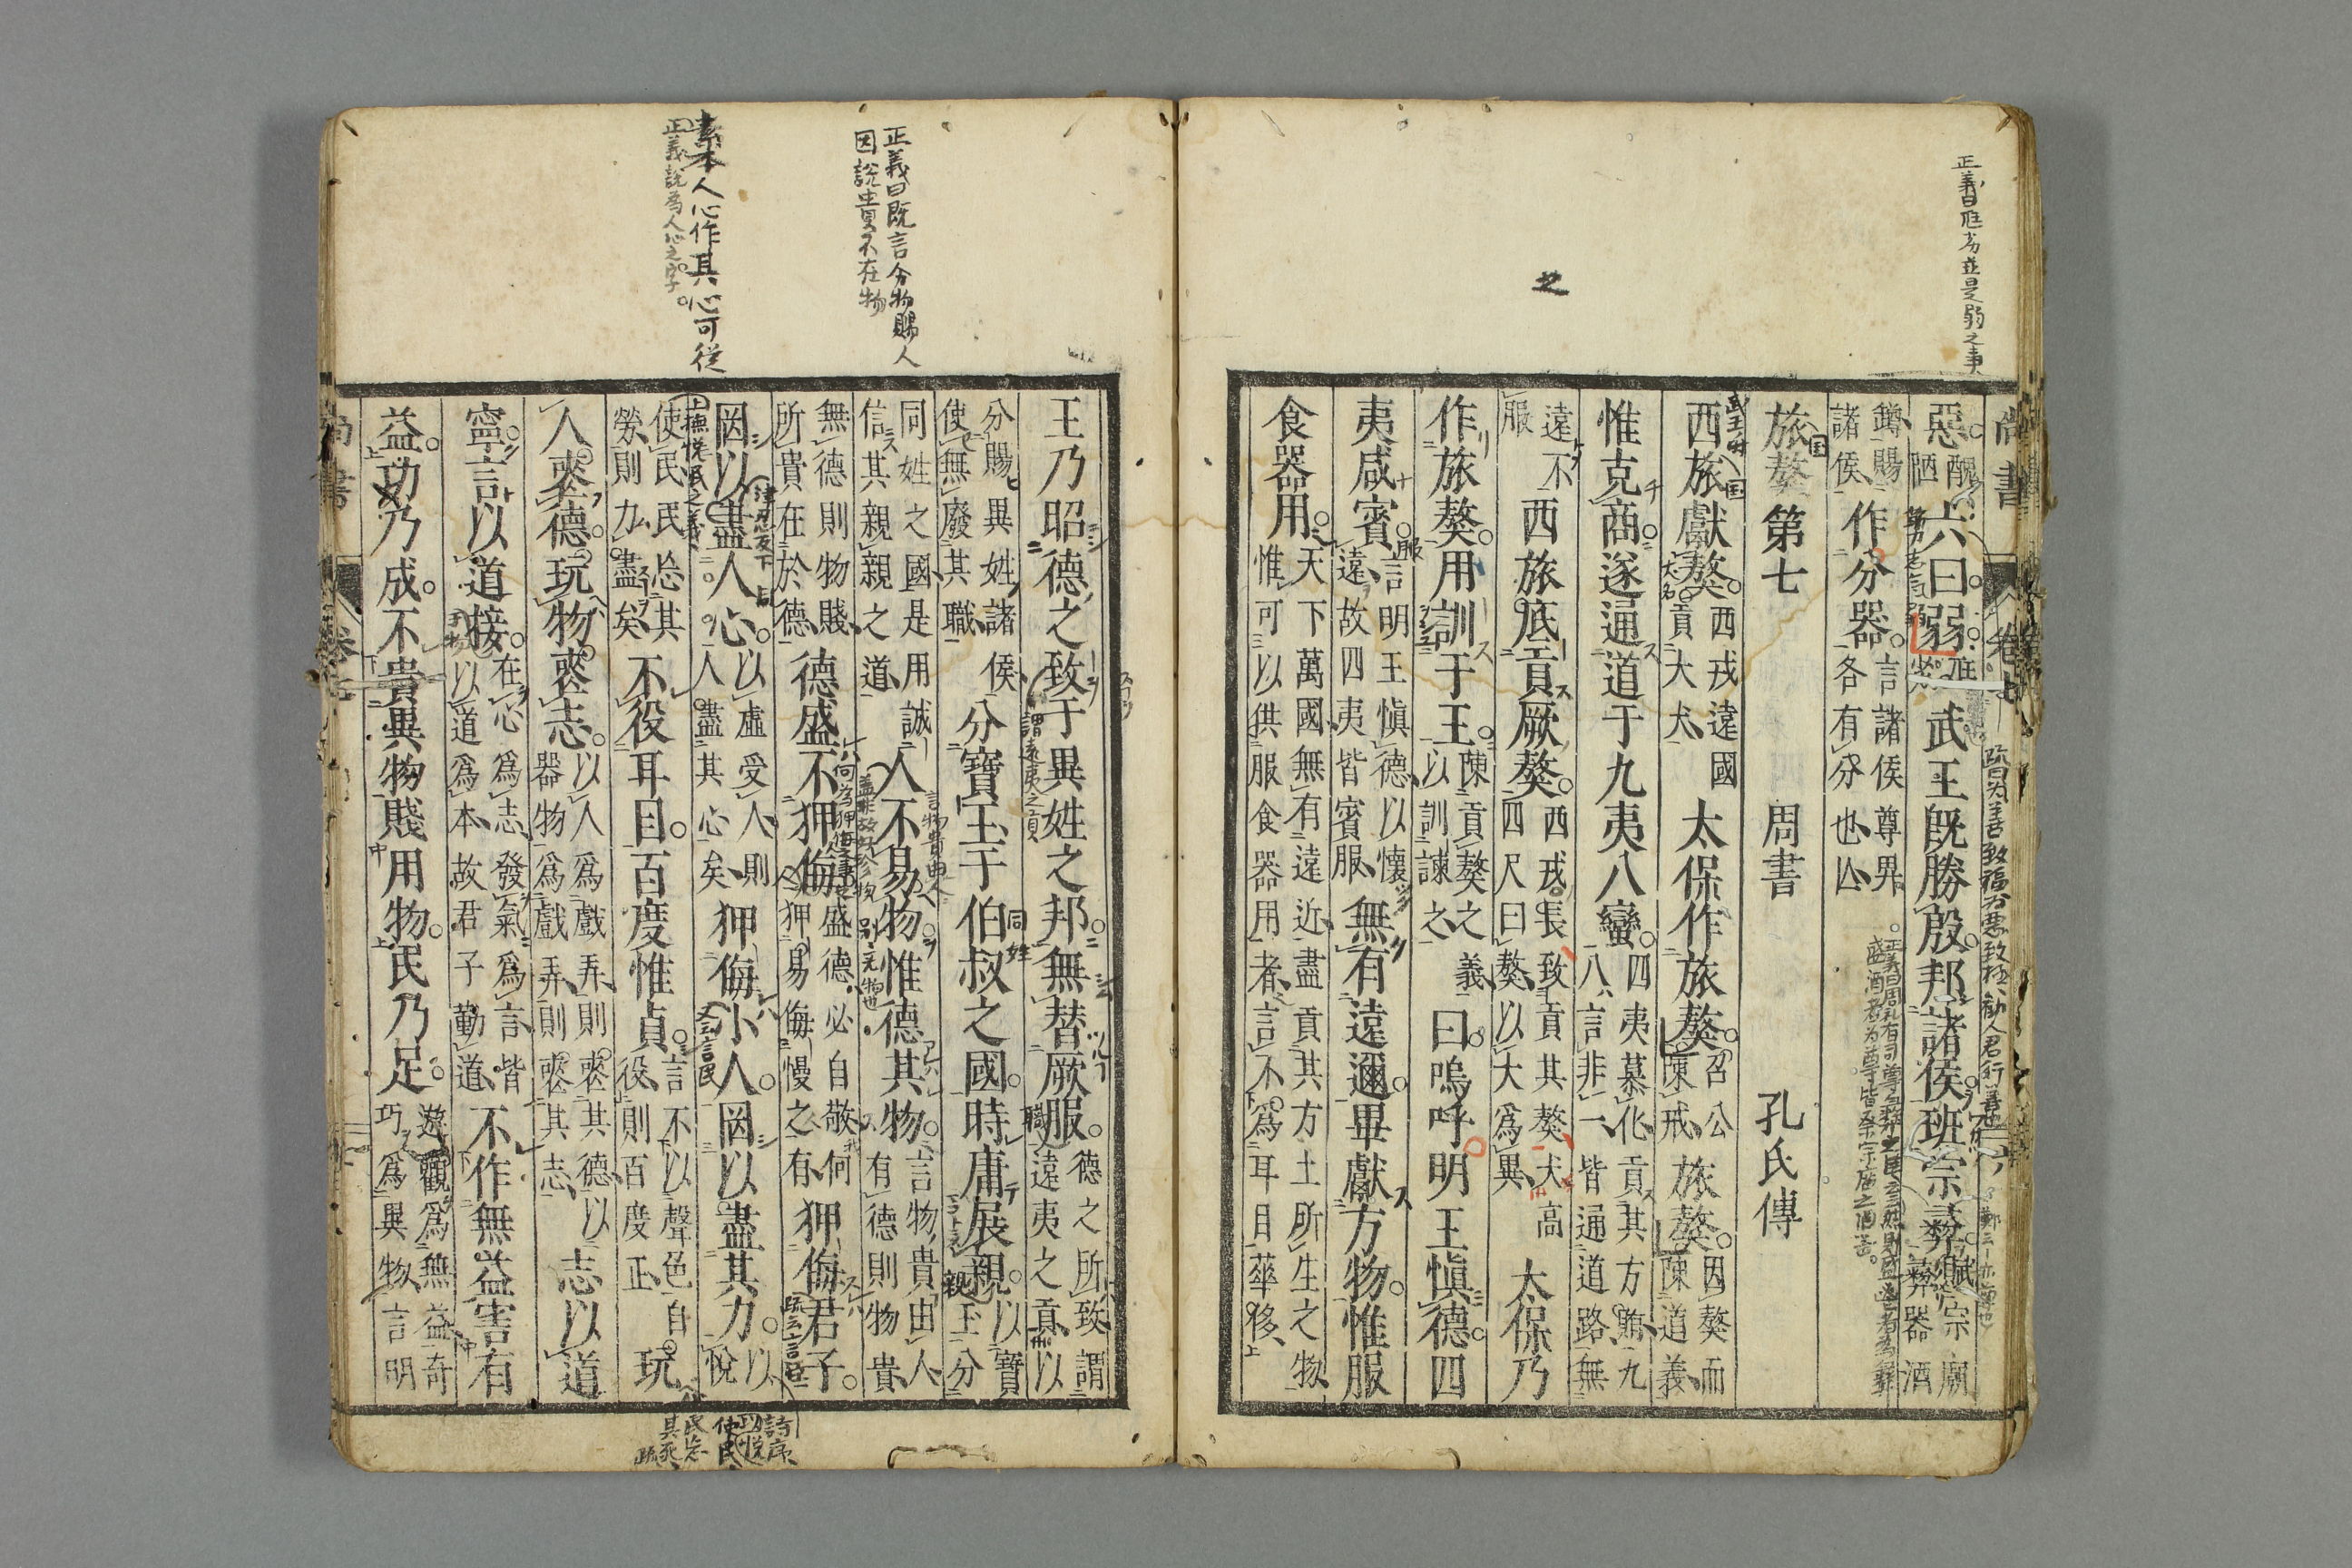 尚書 卷七
惡醜陋六曰弱尫劣武王既勝殷邦諸侯班宗彝賦宗廟彝器酒
鐏賜諸侯作分器言諸侯尊卑各有分也亡
旅獒第七 周書 孔氏傳
西旅獻獒西戎遠國貢大犬太保作旅獒召公陳戒旅獒因獒而陳道義
惟克商遂通道于九夷八蠻四夷慕化貢其方賄九八言非一皆通道路無
遠不服西旅底貢厥獒西戎長致貢其獒犬高四尺曰獒以大爲異太保乃
作旅獒用訓于王陳貢獒之義以訓諫之曰嗚呼明王慎德四
夷咸賓言明王慎德以懷遠故四夷皆賓服無有遠邇畢獻方物惟服
食器用天下萬國無有遠近盡貢其方土所生之物惟可以供服食器用者言不爲耳目華侈
王乃昭德之致于異姓之邦無替厥服德之所致謂遠夷之貢以
分賜異姓諸侯使無廢其職分寶玉于伯叔之國時庸展親以寶玉分
同姓之國是用誠信其親親之道人不易物惟德其物言物貴由人有德則物貴
無德則物賤所貴在於德德盛不狎侮盛德必自敬何狎易侮慢之有狎侮君子
罔以盡人心以虛受人則人盡其心矣狎侮小人罔以盡其力以悅
使民民忘其勞則力盡矣不役耳目百度惟貞言不以聲色自役則百度正玩
人喪德玩物喪志以人爲戲弄則喪其德以器物爲戲弄則喪其志志以道
寧言以道接在心爲志發氣爲言皆以道爲本故君子勤道不作無益害有
益功乃成不貴異物賤用物民乃足遊觀爲無益奇巧爲異物言明
正義曰尫劣並是弱之事
正義曰既言分物賜人
因說貴不在物
素本人心作其心可從
正義說為人心之字